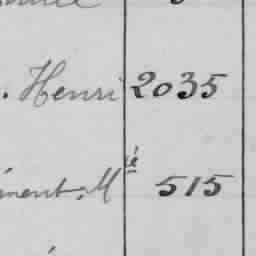 . Henri 2035
ment. Mié 515